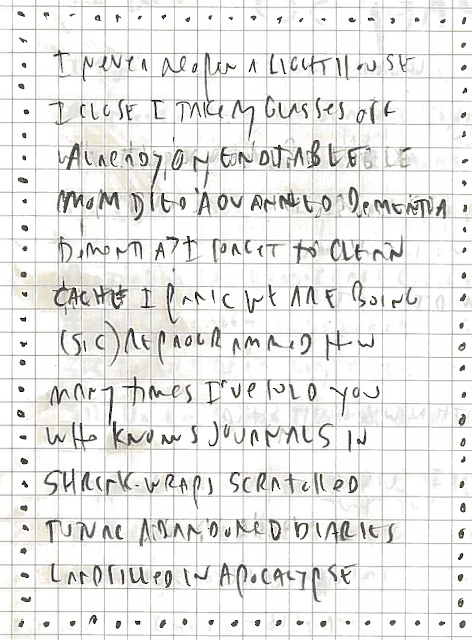 I NEVER  A LIGHTHOUSE
I CLOSE I TAKE MY GLASSES OFF
ALREADY ON END TABLE
MOM DIED ADVANCED DEMENTIA
DEMENTIA? I FORGET TO CLEAN
CACHE I PANIC WE ARE BEING
(SIC) REPROGRAMMED HOW
MANY TIMES I'VE TOLD YOU
WHO KNOWS JOURNALS IN
SHRINK-WRAPS SCRATCHED
ABANDONED DIARIES
LANDFILLED IN APOCALYPSE